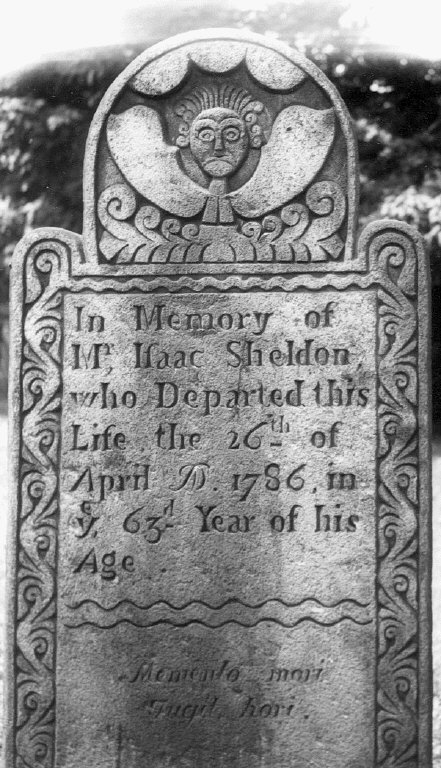 In Memory of
Mr. Isaac Sheldon,
who Departed this
Life the 26th of
April AD. 1786. in
ye 63d Year of his
Age
Memento mori
Fugit hori.